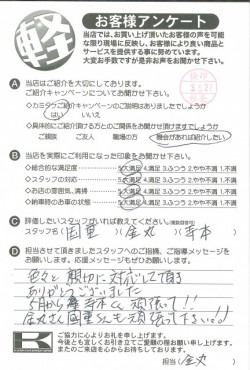 軽
お客様アンケート
当店では、お買い上げ頂いたお客様の声を可能
な限り現場に反映し、お客様により良い商品と
サービスを提供する事に努めています。
大変お手数ですが是非お声をお聞かせ下さい。
A 当店はご紹介を大切にしております。
ご紹介キャンペーンについてお聞かせ下さい。
はい いいえ
◇具体的にご紹介頂ける方とのご関係をお聞かせ頂けますでしょうか
ご親族 ご友人 職場の方 機会があれば紹介したい
B 当店を実際にご利用になった印象をお聞かせ下さい。
◇総合的な満足度 5.大満足 4.満足 3.ふつう 2.やや不満 1.不満
◇スタッフの対応 5.大満足 4.満足 3.ふつう 2.やや不満 1.不満
◇お店の雰囲気、清掃 5.大満足 4.満足 3.ふつう 2.やや不満 1.不満
◇納車時のお車の状態 5.大満足 4.満足 3.ふつう 2.やや不満 1.不満
C 評価したいスタッフがいれば教えてください。
スタッフ名( 国里 )( 金丸 )( 寺本 )
D 担当させて頂きましたスタッフへのご指摘、ご指導メッセージを
お願いします。応援メッセージもぜひお願いします。
色々と親切に対応して頂き
ありがとうございました
寺本くん頑張って!!
金丸さん国里くんも頑張って下さい。!
K
ご協力に心よりお礼を申し上げます。
今後とも宜しくお引き立てご愛顧の程お願い申し上げます。
またのご来店を心からお待ちしております。
担当( 金丸 )